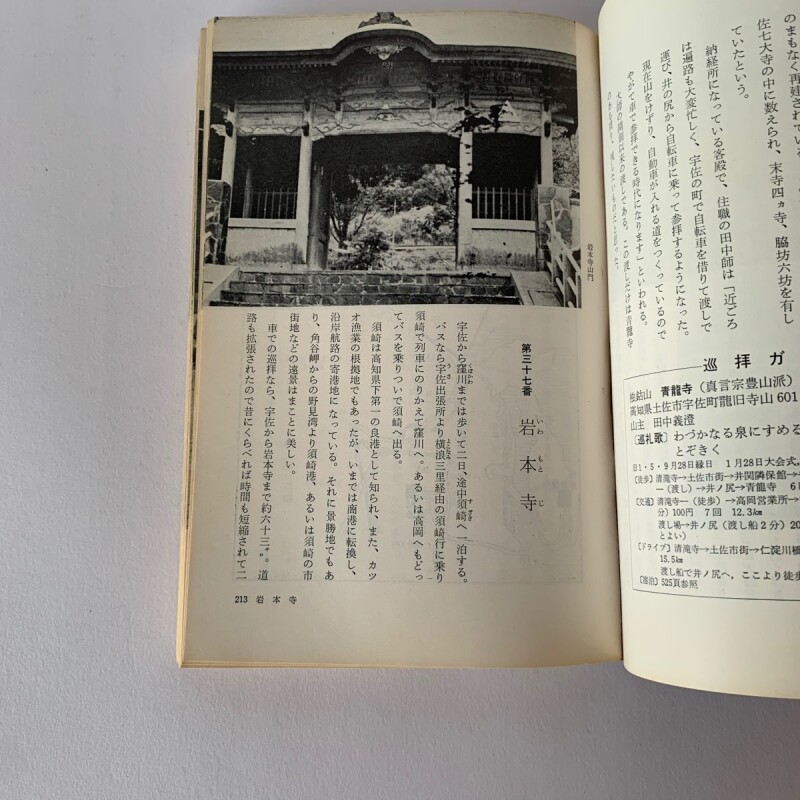 のまもなく再建されている。
佐七大寺の中に数えられ、末寺四ヵ寺、脇坊六坊を有し
ていたという。
納経所になっている客殿で、住職の田中師は「近ごろ
は遍路も大変忙しく、宇佐の町で自転車を借りて渡しで
運び、井の尻から自転車に乗って参拝するようになった。
現在山をけずり、自動車が入れる道をつくっているので
やがて車で参拝できる時代になります」といわれる。
大師の開創以来の渡しである。この渡しだけは青龍寺
巡拝ガ
独鈷山 青龍寺(真言宗豊山派)
高知県土佐市宇佐町龍旧寺山601
山主 田中義澄
〔巡礼歌〕わづかなる泉にすめる
とぞきく
旧1・5・9月28日縁日 1月28日大会式。
〔徒歩〕清滝寺→土佐市街→井関隣保館→
―(渡し)→井ノ尻→青龍寺
〔交通〕清滝寺―(徒歩)→高岡営業所→
分)100円 7回 12.3km
渡し場→井ノ尻(渡し船2分)20
とよい)
〔ドライブ〕清滝寺→土佐市街→仁淀川橋
15.5km
渡し船で井ノ尻へ,ここより徒歩
〔宿泊〕525頁参照
岩本寺山門
第三十七番 岩本寺
いわ もと じ
宇佐から窪川までは歩いて二日、途中須崎へ一泊する。
バスなら宇佐出張所より横浪三里経由の須崎行に乗り
須崎で列車にのりかえて窪川へ。あるいは高岡へもどっ
てバスを乗りついで須崎へ出る。
須崎は高知県下第一の良港として知られ、また、カツ
オ漁業の根拠地でもあったが、いまでは商港に転換し、
沿岸航路の寄港地になっている。それに景勝地でもあ
り、角谷岬からの野見湾より須崎港、あるいは須崎の市
街地などの遠景はまことに美しい。
車での巡拝なら、宇佐から岩本寺まで約六十三㌔。道
路も拡張されたので昔にくらべれば時間も短縮されて二
213 岩本寺